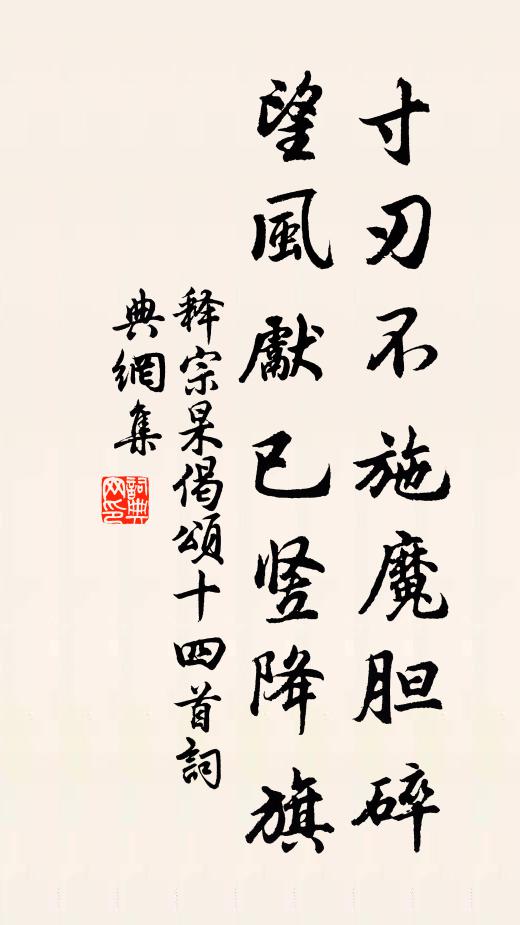 寸刃不施魔胆碎
望風獻已竖降旗
释宗杲偈頌十四首詞
典網集
詞典
网印